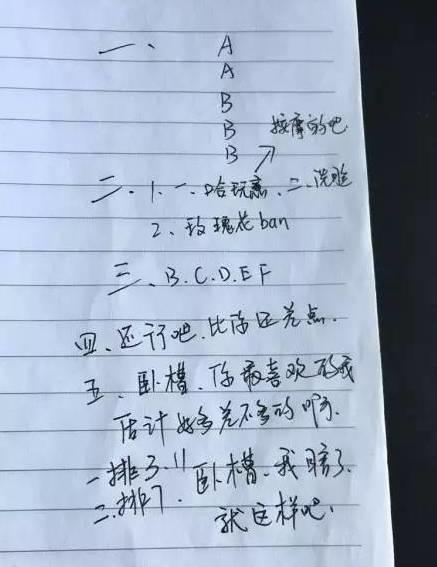 一、A
A
B
B
B
按摩的吧
二、1、一、哈玩意、二、洗
2、玫瑰花ban
三、B.C.D.E.F
四、还行吧.比你还差点.
五、卧槽、你最喜欢的我
估计好多差不多的啊.
一排3、11
二排7.
卧槽、我瞎了、
就这样吧.